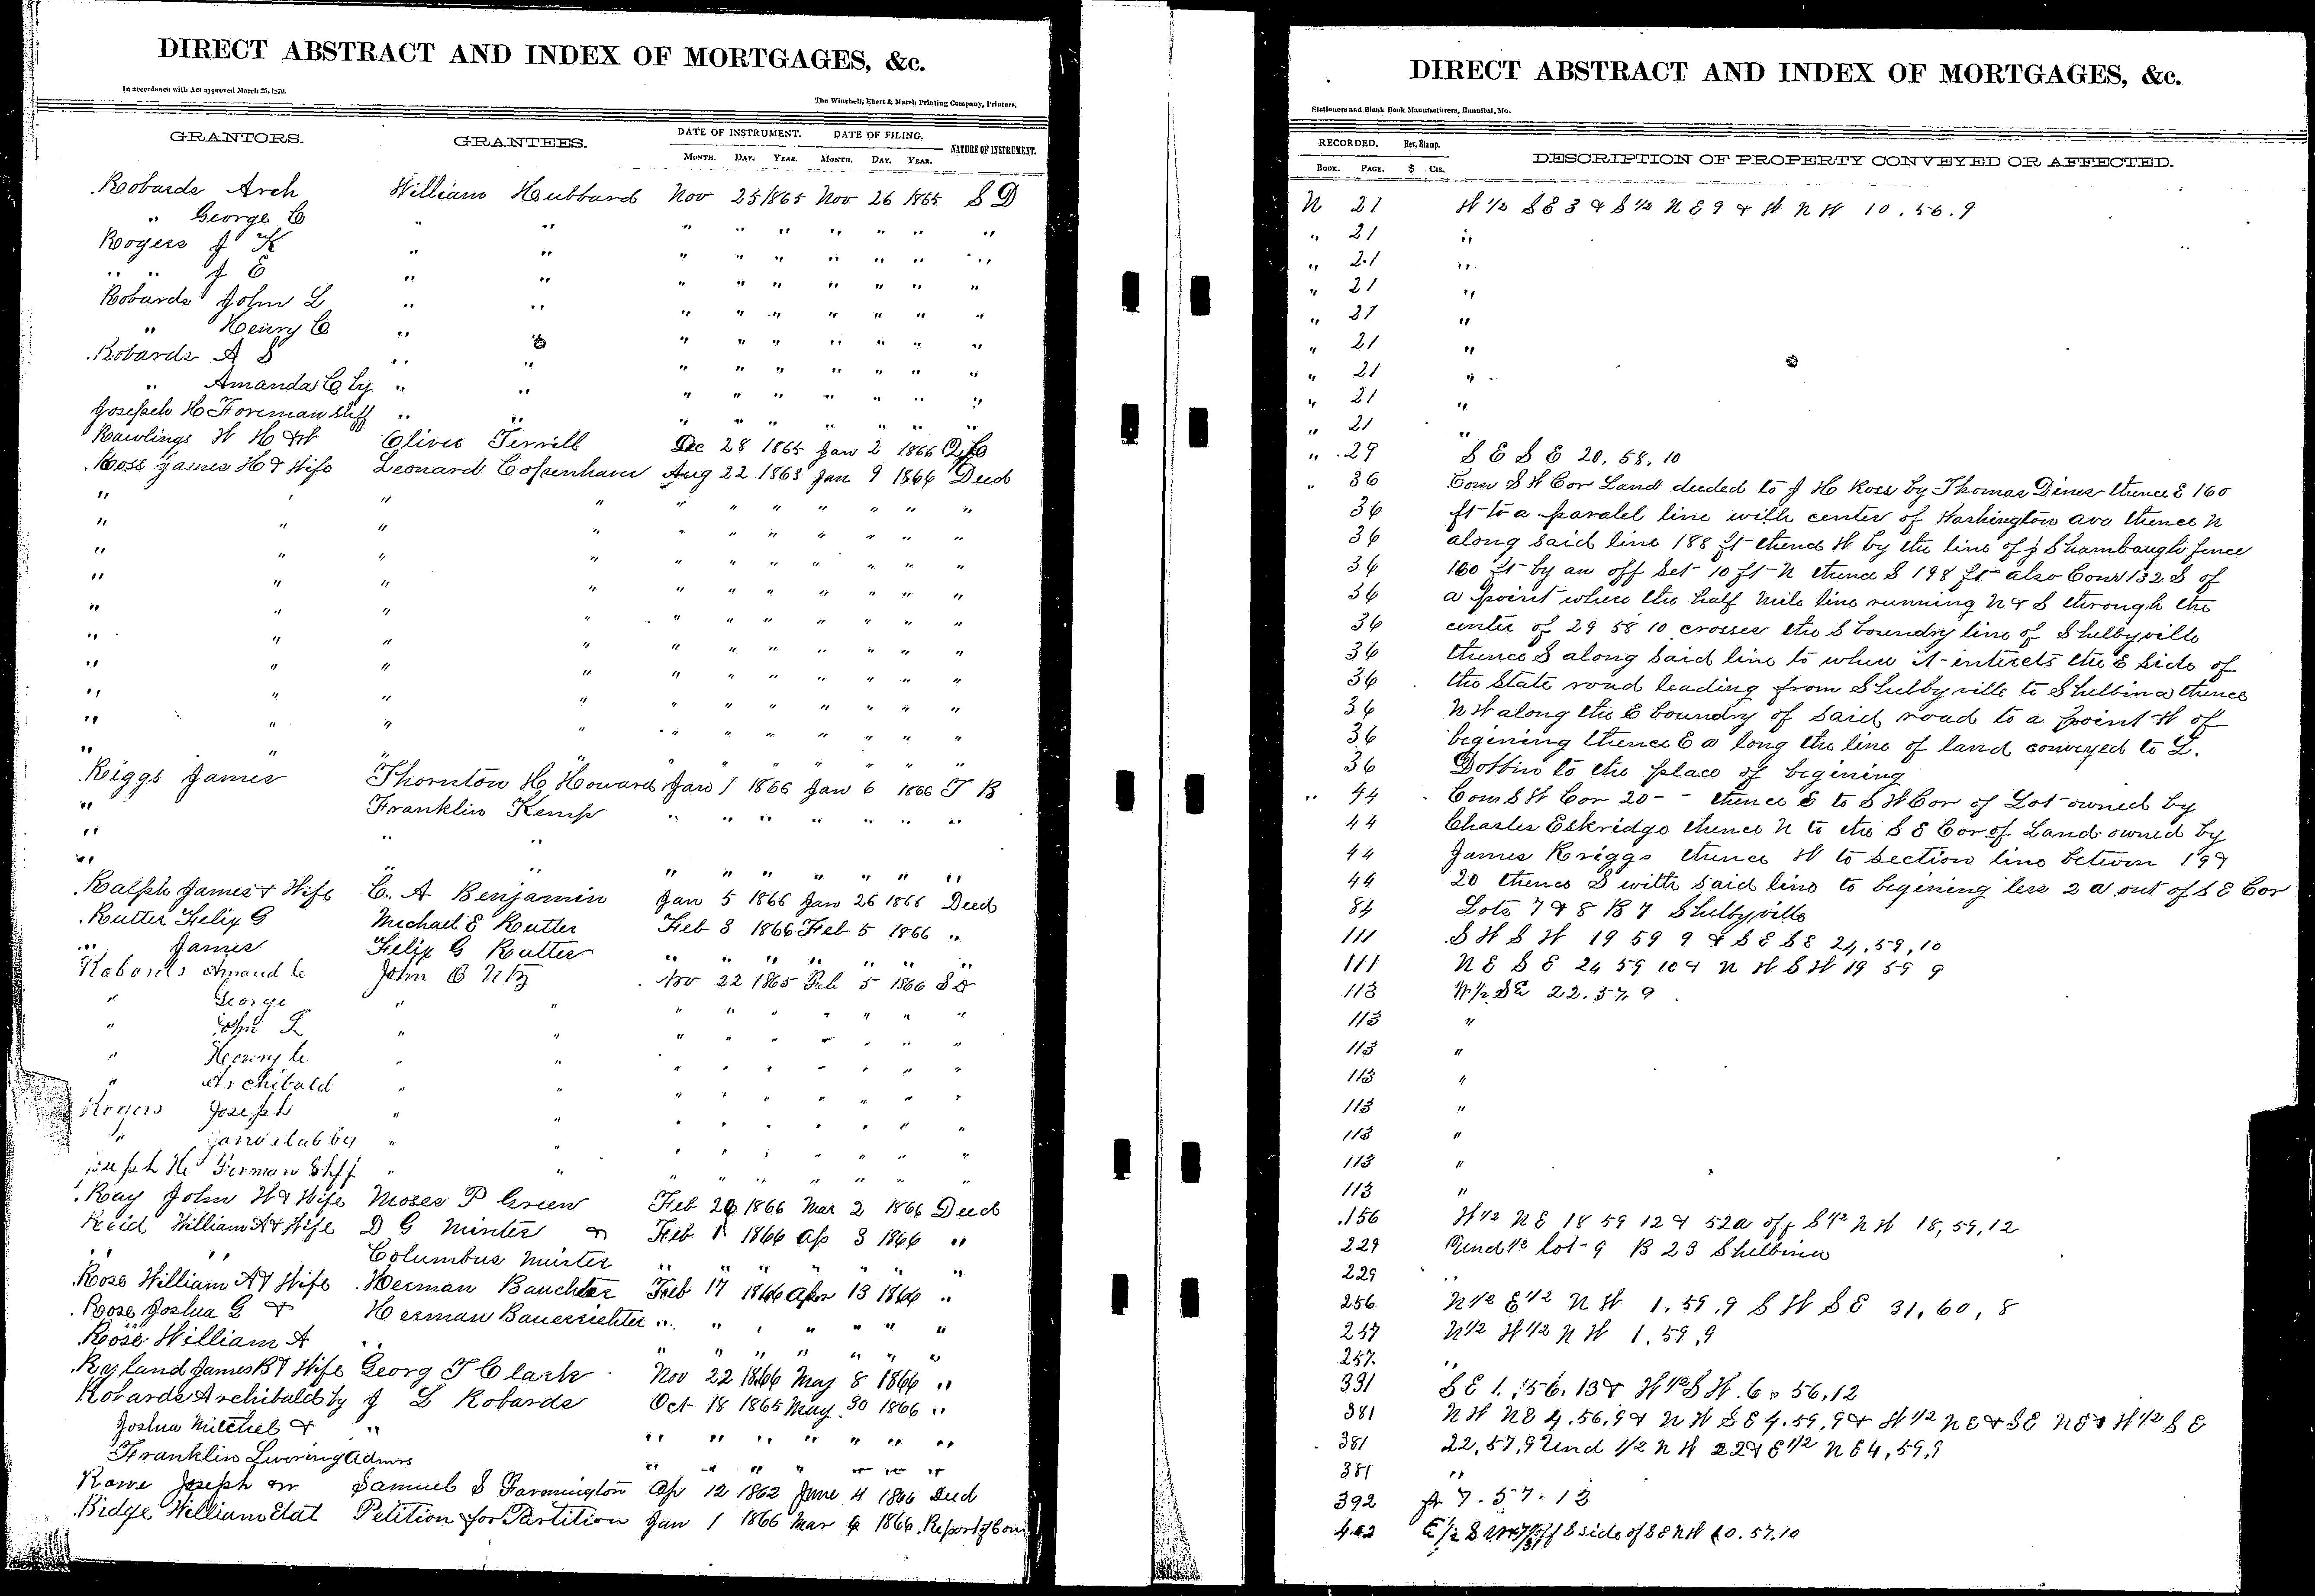 DIRECT ABSTRACT AND INDEX OF MORTGAGES, &c.
In accordance with Act approved March 25, 1870.
The Winchell, Ebert & Marsh Printing Company, Printers,
GRANTORS. GRANTEES. DATE OF INSTRUMENT. DATE OF FILING. NATURE OF INSTRUMENT.
MONTH. DAY. YEAR. MONTH. DAY. YEAR.
Robards Arch William Hubbard Nov 25 1865 Nov 26 1865 S D
" George C " " " " " " " " "
Rogers J K " " " " " " " " "
" " J E " " " " " " " " "
Robards John L " " " " " " " " "
" Henry C " " " " " " " "
Robards A S " " " " " " " " "
" Amanda C by " " " " " " " " "
Joseph H Foreman Shff " " " " " " " " "
Rawlings W H & W Oliver Terrill Dec 28 1865 Jan 2 1866 Q C
Ross James H & Wife Leonard Copenhaver Aug 22 1863 Jan 9 1866 Deed
" " " " " " " " " " "
" " " " " " " " " " "
" " " " " " " " " " "
" " " " " " " " " " "
" " " " " " " " " " "
" " " " " " " " " " "
" " " " " " " " " " "
" " " " " " " " " " "
" " " " " " " " " " "
" " " " " " " " " " "
Riggs James Thornton H Howard Jan 1 1866 Jan 6 1866 T B
" Franklin Kemp " " " " " " "
" " "
" " " " " " " " " "
Ralph James & Wife C. A Benjamin Jan 5 1866 Jan 26 1866 Deed
Rutter Felix G Michael E Rutter Feb 3 1866 Feb 5 1866 "
" James Felix G Rutter " " " " " " "
Robards Amand C John B Utz Nov 22 1865 Feb 5 1866 S D
" George " " " " " " " " "
" John L " " " " " " " " "
" Henry C " " " " " " " " "
" Archibald " " " " " " " " "
Rogers Joseph " " " " " " " " "
" Jane by " " " " " " " " "
Joseph H Forman Shff " " " " " " " " "
Ray John W & Wife Moses P Green Feb 26 1866 Mar 2 1866 Deed
Reid William A & Wife D G Minter & Feb 1 1866 Ap 3 1866 "
" " Columbus Minter " " " " " " "
Rose William A & Wife Herman Bauchter Feb 17 1866 Apr 13 1866 "
Rose Joshua G & Herman Bauerrichter " " " " " " "
Rose William A " " " " " " " "
Ryland James B & Wife Georg T Clark Nov 22 1866 May 8 1866 "
Robards Archibald by J L Robards Oct 18 1865 May 30 1866 "
Joshua Mitchel & " " " " " " " "
Franklin Lovering Admrs " " " " " " "
Rowe Joseph Samuel S Farmington Ap 12 1862 June 4 1866 Deed
Ridge William Etal Petition for Partition Jan 1 1866 Mar 6 1866 Report of Com
DIRECT ABSTRACT AND INDEX OF MORTGAGES, &c.
Stationers and Blank Book Manufacturers, Hannibal, Mo.
RECORDED. Rev. Stamp. DESCRIPTION OF PROPERTY CONVEYED OR AFFECTED.
BOOK. PAGE. $ Cts.
N 21 W ½ S E 3 & S ½ N E 9 & W N W 10. 56. 9
" 21 "
" 21 "
" 21 "
" 21 "
" 21 "
" 21 "
" 21 "
" 21 "
" 29 S E S E 20. 58. 10
" 36 Com S W Cor Land deeded to J H Ross by Thomas Dines thence E 160
36 ft to a paralel line with center of Washington ave thence N
36 along said line 188 ft thence W by the line of J Shambaugh fence
36 160 ft by an off set 10 ft N thence S 198 ft also Com 132 S of
36 a point where the half mile line running N & S through the
36 center of 29 58 10 crosses the S boundry line of Shelbyville
36 thence S along said line to where it intersects the E side of
36 the State road leading from Shelbyville to Shelbina thence
36 N W along the E boundry of said road to a point W of
36 begining thence E a long the line of land conveyed to L.
36 Dobbin to the place of begining
" 44 Com S W Cor 20 - - thence E to S W Cor of Lot owned by
44 Charles Eskridge thence N to the S E Cor of Land owned by
44 James Kriggs thence W to section line betwen 19 &
44 20 thence S with said line to begining less 2 a out of S E Cor
84 Lots 7 & 8 B 7 Shelbyville
111 S W S W 19 59 9 & S E S E 24, 59, 10
111 N E S E 24 59 10 & N W S W 19 59 9
113 W ½ S E 22. 57. 9
113 "
113 "
113 "
113 "
113 "
113 "
113 "
156 W ½ N E 18 59 12 & 52a off S ½ N W 18, 59, 12
229 Und ½ lot 9 B 23 Shelbina
229 "
256 N ½ E ½ N W 1. 59. 9 S W S E 31, 60, 8
257 N ½ W ½ N W 1. 59. 9
257. "
331 S E 1. 56. 13 & W ½ S W. 6. 56. 12
381 N W N E 4. 56. 9 & N W S E 4. 59. 9 & W ½ N E & S E N E & W ½ S E
381 22, 57, 9 Und ½ N W 22 & E ½ N E 4, 59, 9
381 "
392 fr 7. 57. 13
E ½ S W off S side of S E N W 10. 57. 10